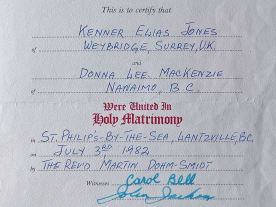 This is to certify that
KENNER ELIAS JONES
of WEYBRIDGE, SURREY, U.K.
and
DONNA LEE MACKENZIE
of NANAIMO, B.C.
Were United In
Holy Matrimony
in ST. PHILIP'S-BY-THE-SEA, LANTZVILLE, BC.
on JULY 3RD 1982
by THE REV'D MARTIN DOHM-SMIDT
Witnesses Carol Bell